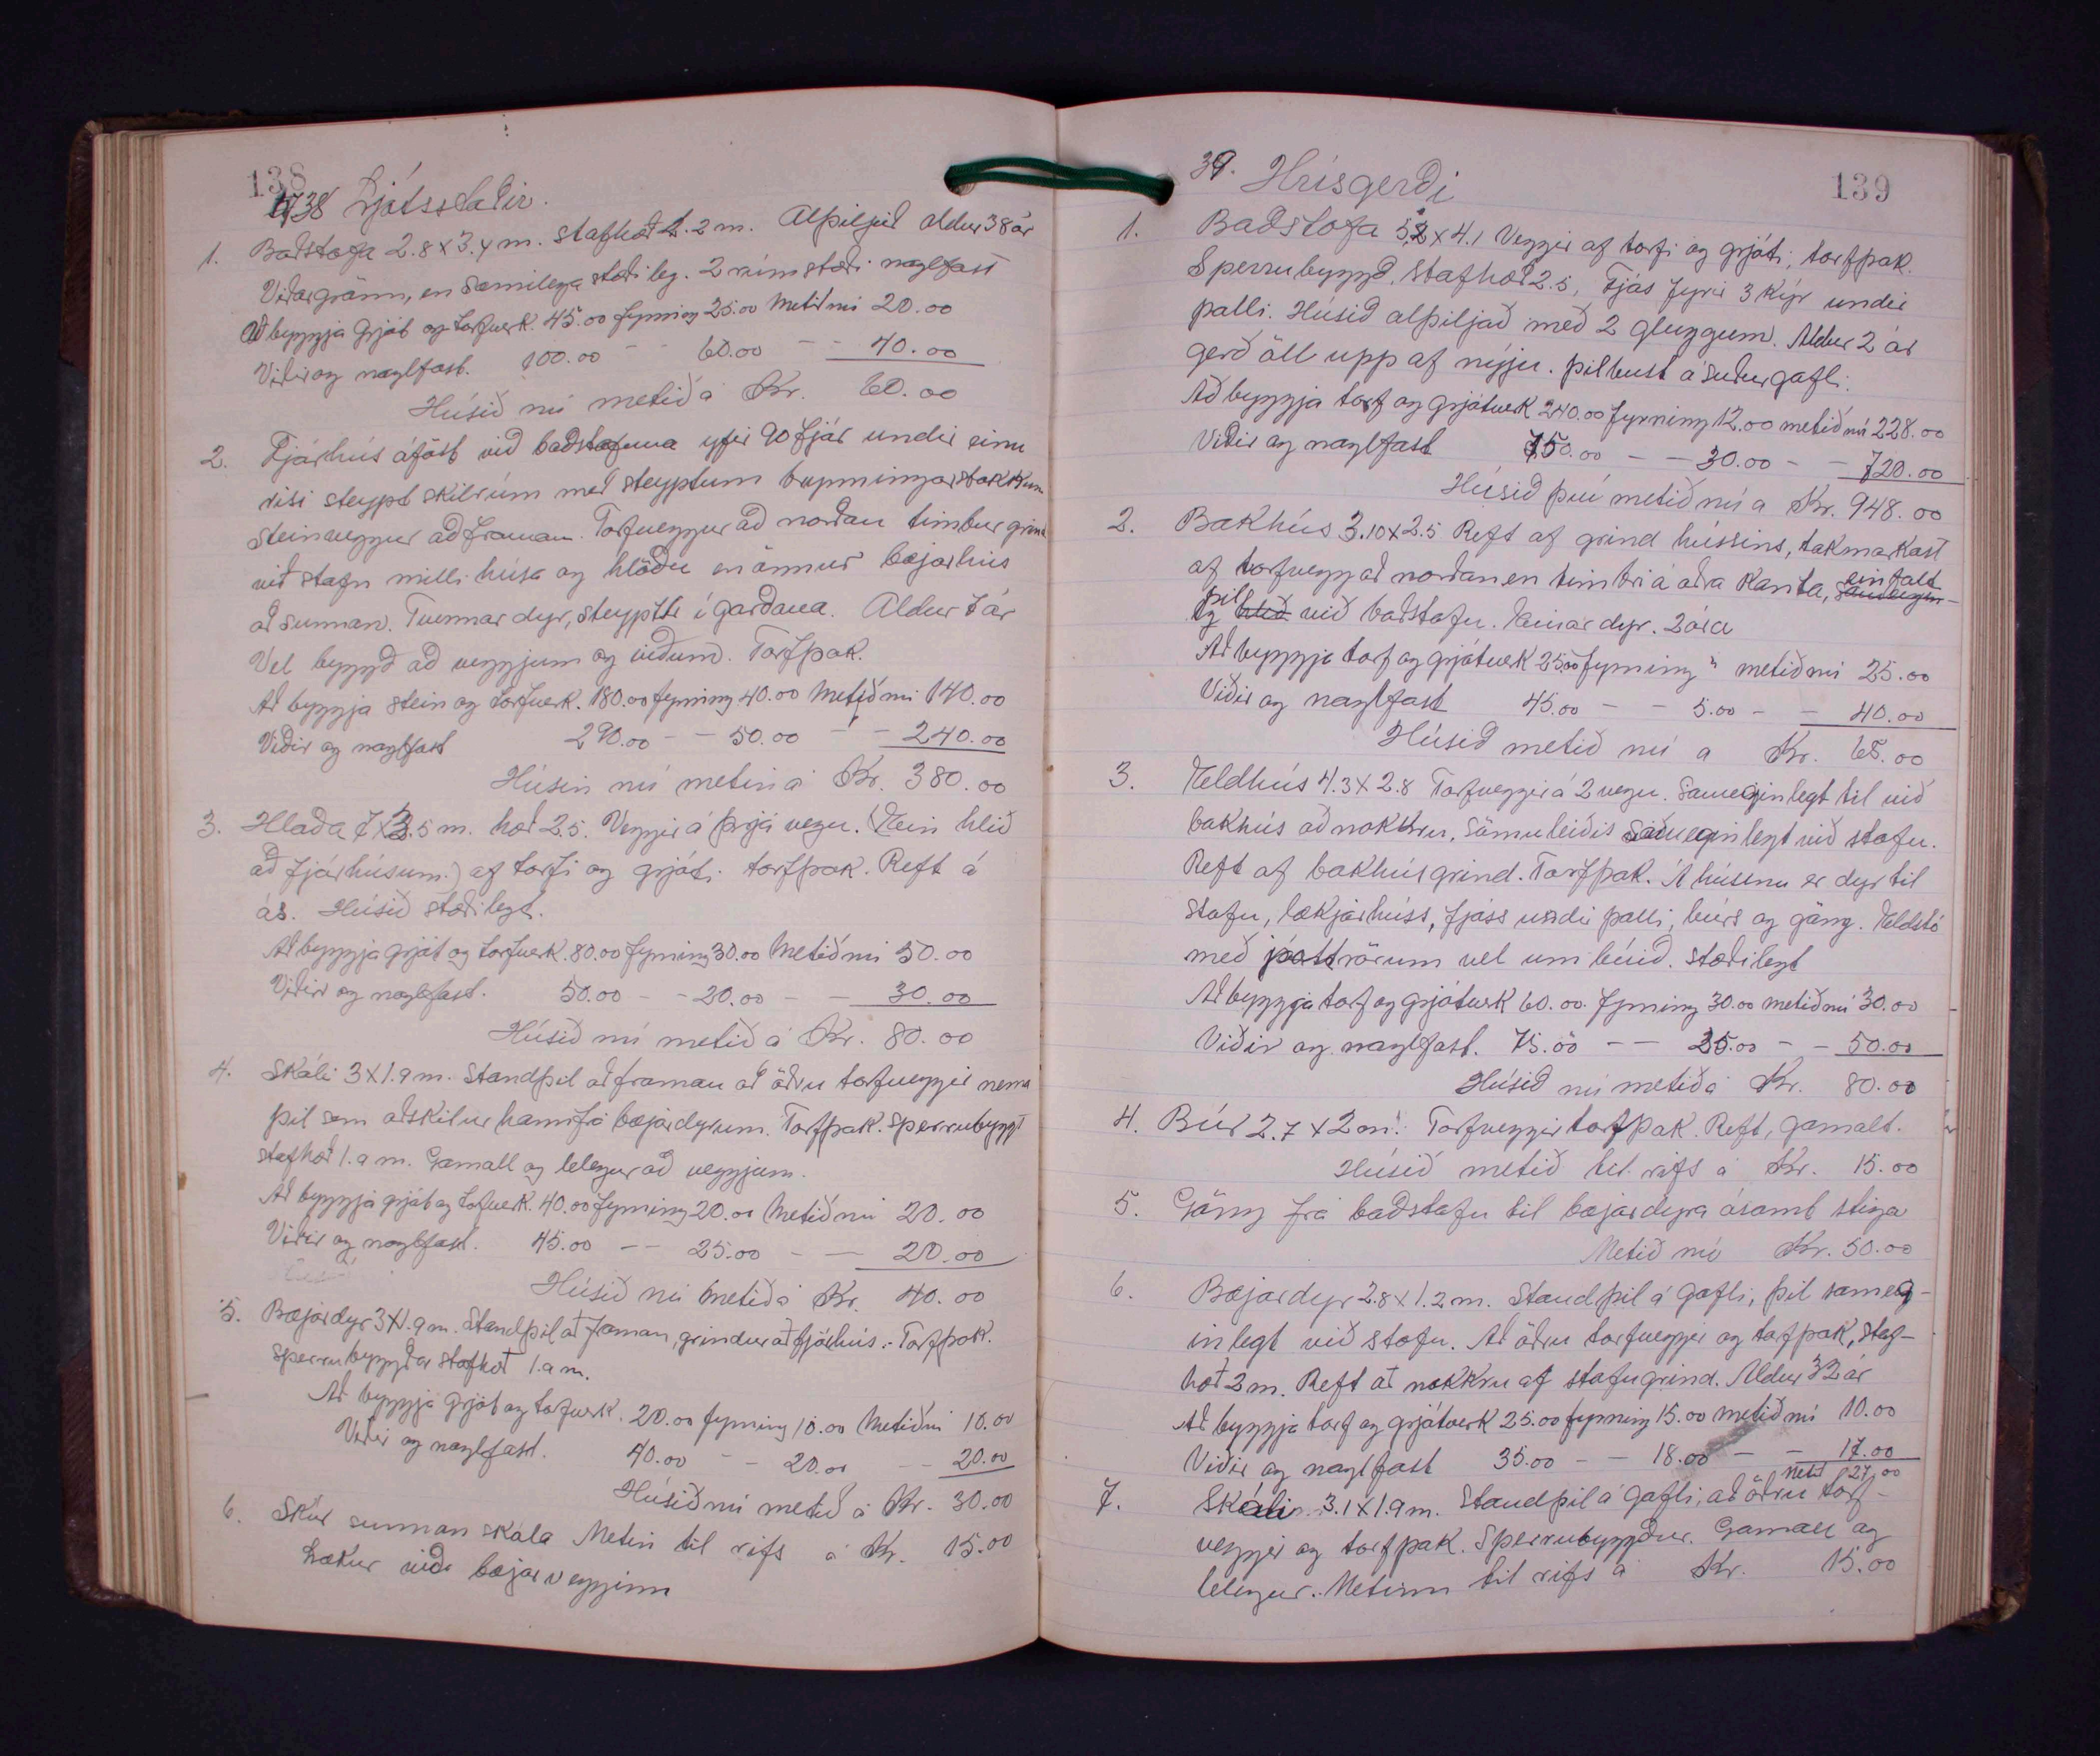 138
38 Ljótsstaðir.
1. Baðstofa 2.8 x 3.4 m. stafhæð 1.2 m. Alþiljuð aldur 38 ár
Viðargrönn, en sæmilega stæðileg. 2 rúmstæði naglföst
Að byggja grjót og torfverk. 45.00 fyrning 25.00 Metið nú 20.00
Viðir og naglfast. 100.00 - - 60.00 - - 40.00
Húsið nú metið á Kr. 60.00
2. Fjárhús áföst við baðstofuna yfir 90 fjár undir einu
risi steypt skilrúm með steyptum brynningarstokkum
steinveggur að framan. Torfveggur að norðan timbur grind
við stafn milli húsa og hlöðu en önnur bæjarhús
að sunnan. Tvennar dyr, steyptir í garðana. Aldur 7 ár
Vel byggð að veggjum og viðum. Torfþak.
Að byggja stein og torfverk. 180.00 fyrning 40.00 Metið nú 140.00
Viðir og naglfast 290.00 - - 50.00 - - 240.00
Húsin nú metin á Kr. 380.00
3. Hlaða 7 x 3.5 m. hæð 2.5. Veggir á þrjá vegu. (Ein hlið
að fjárhúsum.) af torfi og grjóti torfþak. Reft á
ás. Húsið stæðilegt.
Að byggja grjót og torfverk. 80.00 fyrning 30.00 Metið nú 50.00
Viðir og naglfast. 50.00 - - 20.00 - - 30.00
Húsið nú metið á Kr. 80.00
4. Skáli 3 x 1.9 m. Standþil að framan að öðru torfveggir nema
þil sem aðskilur hann frá bæjardyrum. Torfþak. Sperrubyggt
stafhæð 1.9 m. Gamall og lélegur að veggjum.
Að byggja grjót og torfverk. 40.00 fyrning 20.00 Metið nú 20.00
Viðir og naglfast. 45.00 - - 25.00 - - 20.00
Húsið nú metið á Kr. 40.00
5. Bæjardyr 3 x 1.9 m. Standþil að framan, grindur að fjárhús. - Torfþak.
Sperrubyggðar stafhæð 1.9 m.
Að byggja grjót og torfverk. 20.00 fyrning 10.00 Metið nú 10.00
Viðir og naglfast. 40.00 - - 20.00 - - 20.00
Húsið nú metið á Kr. 30.00
6. Skúr sunnan skála Metin til rifs á Kr. 15.00
Lækur við bæjarvegginn
139
39. Hrísgerði
1. Baðstofa 5.2 x 4.1 Veggir af torfi og grjóti, torfþak.
Sperrubyggð. Stafhæð 2.5, Fjós fyrir 3 kýr undir
palli. Húsið alþiljað með 2 gluggum. Aldur 2 ár
gerð öll upp af nýju. þilbust á suðurgafli.
Að byggja torf og grjótverk 240.00 fyrning 12.00 metið nú 228.00
Viðir og naglfast 750.00 - - 30.00 - - 720.00
Húsið því metið nú á Kr. 948.00
2. Bakhús 3.10 x 2.5 Reft af grind hússins, takmarkast
af torfvegg að norðan en timbri á aðra kanta, einfalt
þil við baðstofu. Einar dyr. 2 ára
Að byggja torf og grjótverk 25.00 fyrning " metið nú 25.00
Viðir og naglfast 45.00 - - 5.00 - - 40.00
Húsið metið nú á Kr. 65.00
3. Eldhús 4.3 x 2.8 Torfveggir á 2 vegu. Sameginlegt til við
bakhús að nokkru, sömuleiðis sameginlegt við stofu.
Reft af bakhúsgrind. Torfþak. Á húsinu er dyr til
stofu, lækjarhúss, fjóss undir palli, búrs og göng. Eldstó
með pottrörum vel um búið. Stæðilegt
Að byggja torf og grjótverk 60.00. fyrning 30.00 metið nú 30.00
Viðir og naglfast. 75.00 - - 25.00 - - 50.00
Húsið nú metið á Kr. 80.00
4. Búr 2.7 x 2 m. Torfveggir torfþak. Reft, gamalt.
Húsið metið til rifs á Kr. 15.00
5. Göng frá baðstofu til bæjardyra ásamt stiga
Metið nú Kr. 50.00
6. Bæjardyr 2.8 x 1.2 m. Standþil á gafli, þil sameg-
inlegt við stofu. Að öðru torfveggir og torfþak, staf-
hæð 2 m. Reft að nokkru af stofugrind. Aldur 32 ár
Að byggja torf og grjótverk 25.00 fyrning 15.00 metið nú 10.00
Viðir og naglfast 35.00 - - 18.00 - - 17.00
Metið 27.00
7. Skáli 3.1 x 1.9 m. Standþil á gafli, að öðru torf-
veggir og torfþak. Sperrubyggður. Gamall og
lélegur. Metinn til rifs á Kr. 15.00